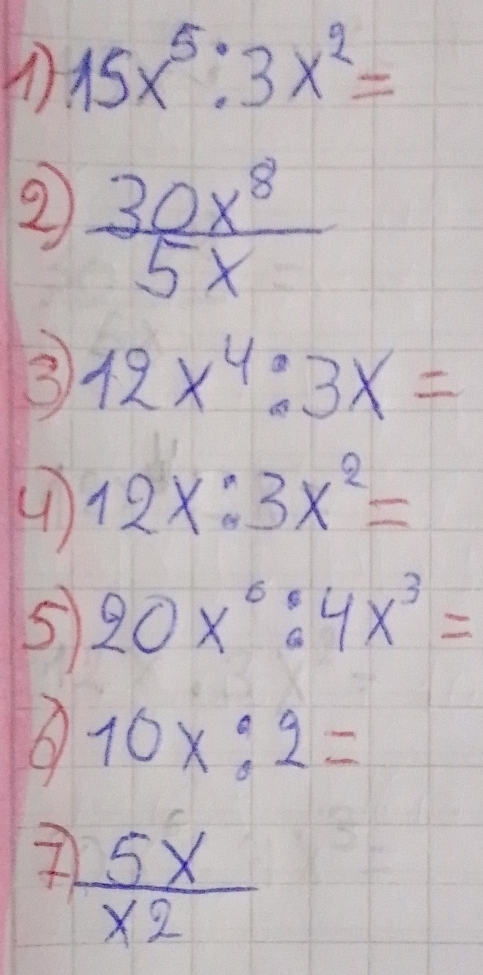 1) 15x⁵:3x²=
2) 30x⁸
5x
3) 12x⁴:3x=
4) 12x:3x²=
5) 20x⁶:4x³=
6) 10x:2=
7) 5x
x2